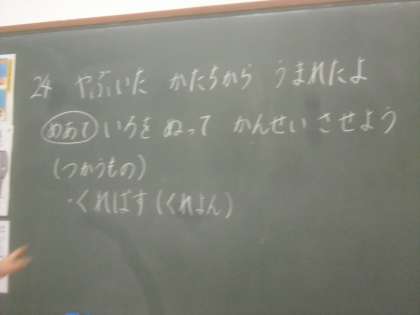 24 やぶいた かたちから うまれたよ
めあて いろを ぬって かんせい させよう
(つかうもの)
・くれぱす(くれよん)